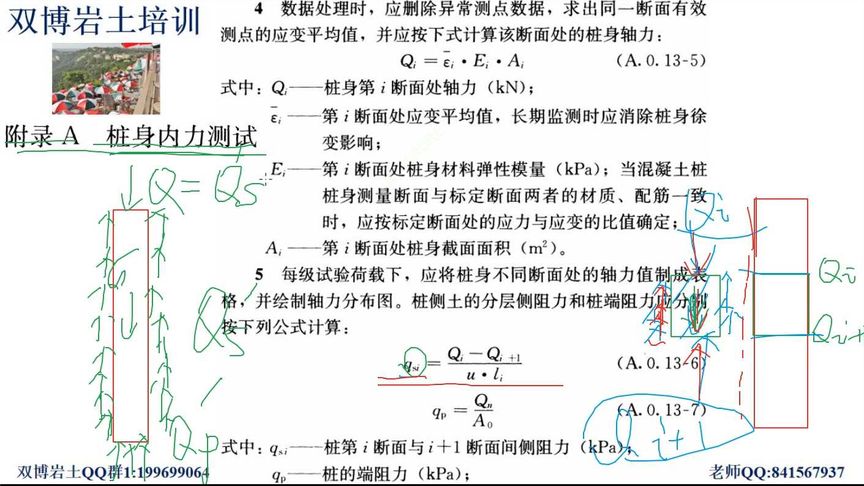 双博岩土培训
4 数据处理时，应删除异常测点数据，求出同一断面有效
测点的应变平均值，并应按下式计算该断面处的桩身轴力：
Qᵢ = ε̄ᵢ · Eᵢ · Aᵢ (A.0.13-5)
式中：Qᵢ——桩身第 i 断面处轴力（kN）；
ε̄ᵢ——第 i 断面处应变平均值，长期监测时应消除桩身徐
变影响；
Eᵢ——第 i 断面处桩身材料弹性模量（kPa）；当混凝土桩
桩身测量断面与标定断面两者的材质、配筋一致
时，应按标定断面处的应力与应变的比值确定；
Aᵢ——第 i 断面处桩身截面面积（m²）。
5 每级试验荷载下，应将桩身不同断面处的轴力值制成表
格，并绘制轴力分布图。桩侧土的分层侧阻力和桩端阻力应分别
按下列公式计算：
qsi = (Qᵢ − Qᵢ₊₁) / (u · lᵢ) (A.0.13-6)
qp = Qn / A₀ (A.0.13-7)
式中：qsi——桩第 i 断面与 i+1 断面间侧阻力（kPa）；
qp——桩的端阻力（kPa）；
附录 A 桩身内力测试
Q = Qs
Qs
Qp
Qi
Qi
Qi+
Qi+1
双博岩土QQ群1:199699064
老师QQ:841567937